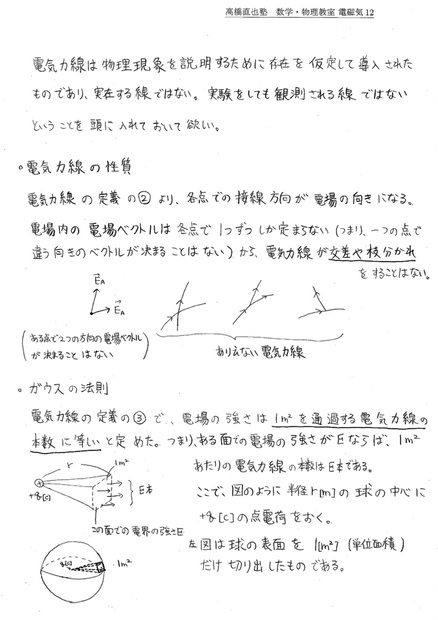 高橋直也塾 数学・物理教室 電磁気 12
電気力線は物理現象を説明するために存在を仮定して導入された
ものであり、実在する線ではない。実験をしても観測される線ではない
ということを頭に入れておいて欲しい。
・電気力線の性質
電気力線の定義の②より、各点での接線方向が電場の向きになる。
電場内の電場ベクトルは各点で1つずつしか定まらない(つまり、一つの点で
違う向きのベクトルが決まることはない)から、電気力線が交差や枝分かれ
をすることはない。
E_A
E_A
(ある点で2つの方向の電場ベクトル
が決まることはない)
ありえない電気力線
・ガウスの法則
電気力線の定義の③で、電場の強さは1m²を通過する電気力線の
本数に等しいと定めた。つまり、ある面での電場の強さがEならば、1m²
あたりの電気力線の本数はE本である。
r
1m²
+q[C]
E本
この面での電界の強さE
ここで、図のように半径r[m]の球の中心に
+q[C]の点電荷をおく。
左図は球の表面を1[m²](単位面積)
だけ切り出したものである。
+q[C]
1m²